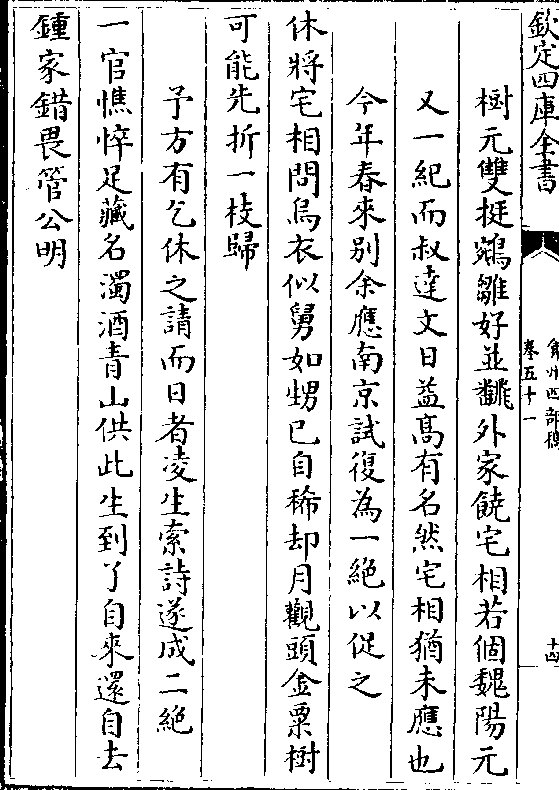 欽定四庫全書
弇州四部稿
卷五十一
十四
樹元雙挺鵷雛好並翻外家饒宅相若個魏陽元
又一紀而叔達文日益髙有名然宅相猶未應也
今年春來别余應南京試復為一絶以促之
休將宅相問烏衣似舅如甥已自稀却月觀頭金粟樹
可能先折一枝歸
予方有乞休之請而日者凌生索詩遂成二絶
一官憔悴足藏名濁酒青山供此生到了自來還自去
鍾家錯畏管公明